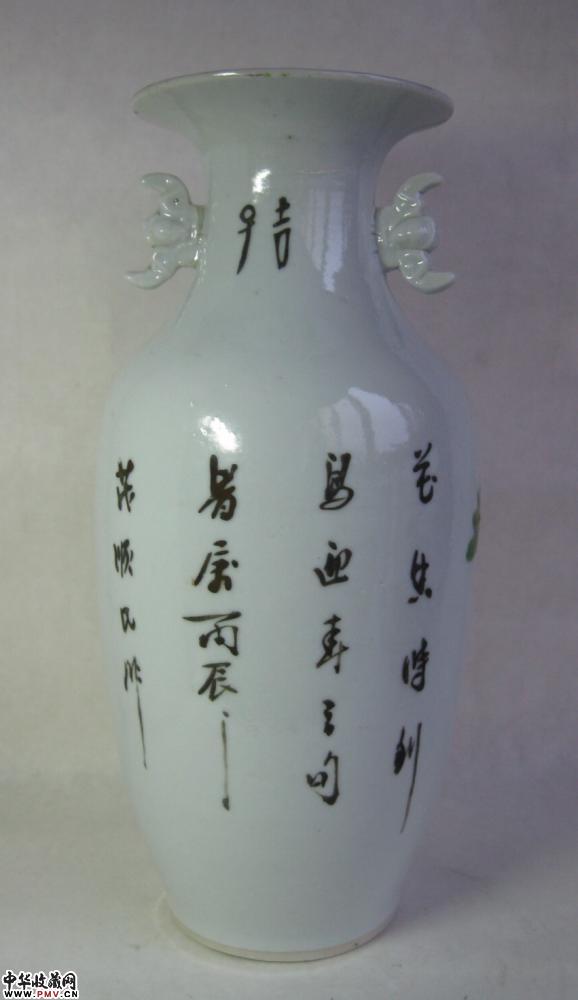 吉
花 時到
鳥迎春之句
旹 丙辰
茂順氏作
中华收藏网
WWW.PMV.CN